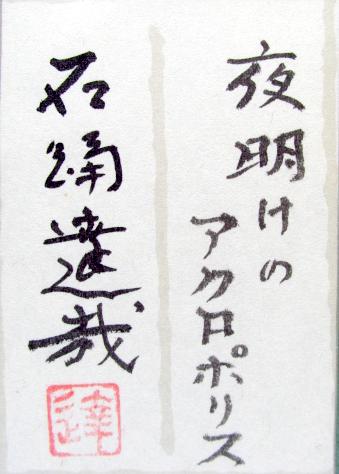 夜明けの
アクロポリス
石踊達哉
達